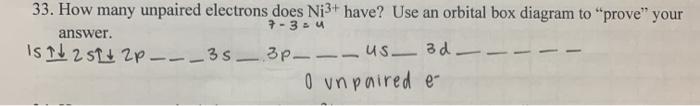 33. How many unpaired electrons does Ni3+ have? Use an orbital box diagram to "prove" your
7 - 3 = 4
answer.
1s ↑↓ 2s ↑↓ 2p _ _ _ 3s _ 3p _ _ _ 4s _ 3d _ _ _ _ _
0 unpaired e-